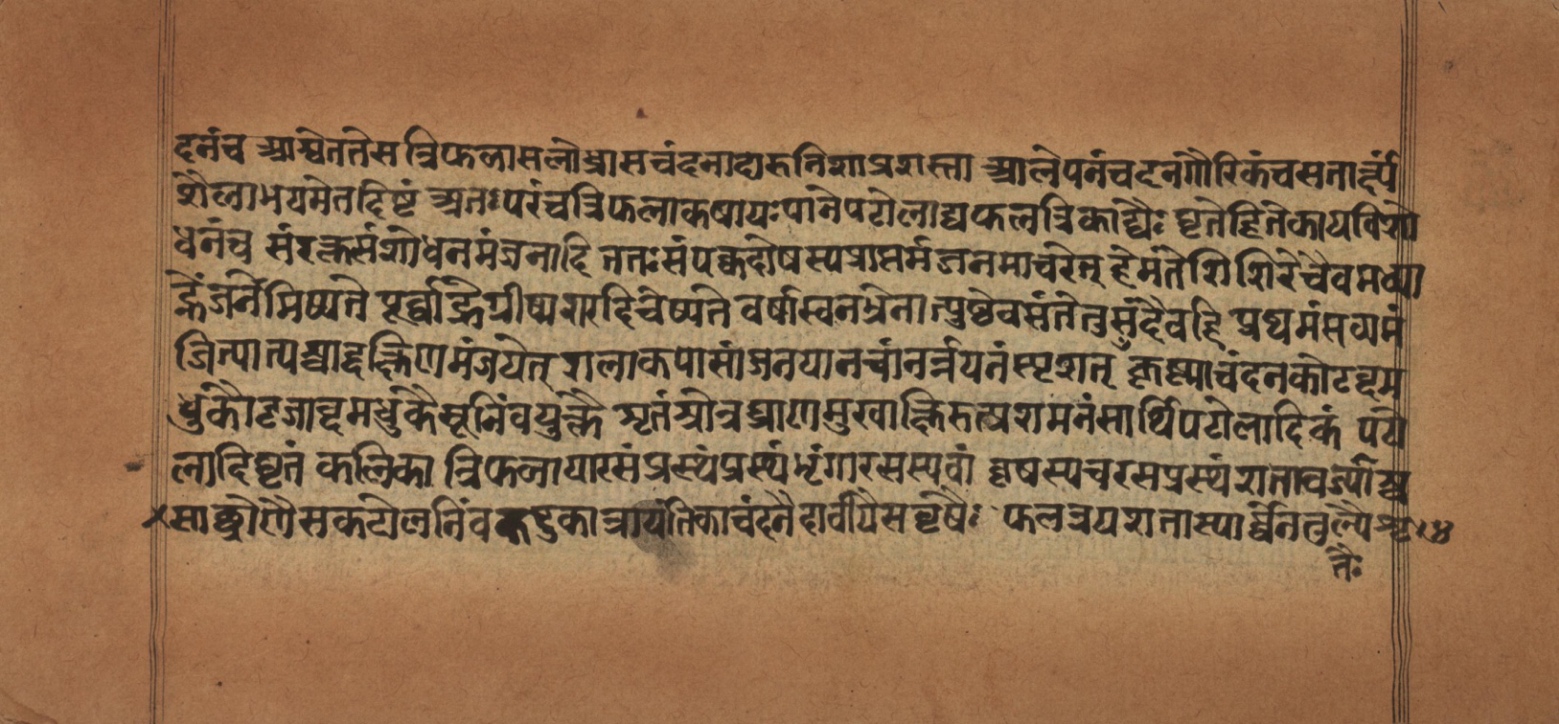 दनंच आश्चेततेसत्रिफलासलोध्रासचंदनादारुनिशाप्रशस्ता आलेपनंचदनगौरिकंचसताक्ष्यं
शैलाभयमेतदिष्टं अतःपरंचत्रिफलाकषायःपानेपटोलाद्यफलत्रिकाद्यैः घृतेहितेकायविशो
धनंच संरक्तसंशोधनमंजनादि ततःसंपक्वदोषस्यप्राप्तमंजनमाचरेत् हेमंतेशिशिरेचैवमध्या
ह्नेंजनमिष्यते पूर्वाह्नेग्रीष्मशरदिचेष्यते वर्षास्वनभ्रेनात्युष्णेवसंतेतुसदैवहि प्रथमंसव्यमं
जित्पात्पश्चाद्दक्षिणमंजयेत् शलाकयासांजनयानचांनर्न्नयनंस्पृशत् कृष्माचंदनकोटहम
धुकोटजाह्वमधुकैर्मूनिंबयुक्तै शृतंश्रोत्रघ्राणमुखाक्षिरुत्प्रशमनंसार्थिपटोलादिकं पटो
लादिघृतं कलिका त्रिफलायारसंप्रस्थंप्रस्थंभृंगारसस्यवां वृषस्यचरसप्रस्थंशतावर्ज्याश्च
साक्षोणैसकटोलनिंवकटुकात्रायंतिकाचंदनैदार्वीयैसवृषैः फलत्रयशतास्पार्द्धेनतुल्यैशृ ४
तैः